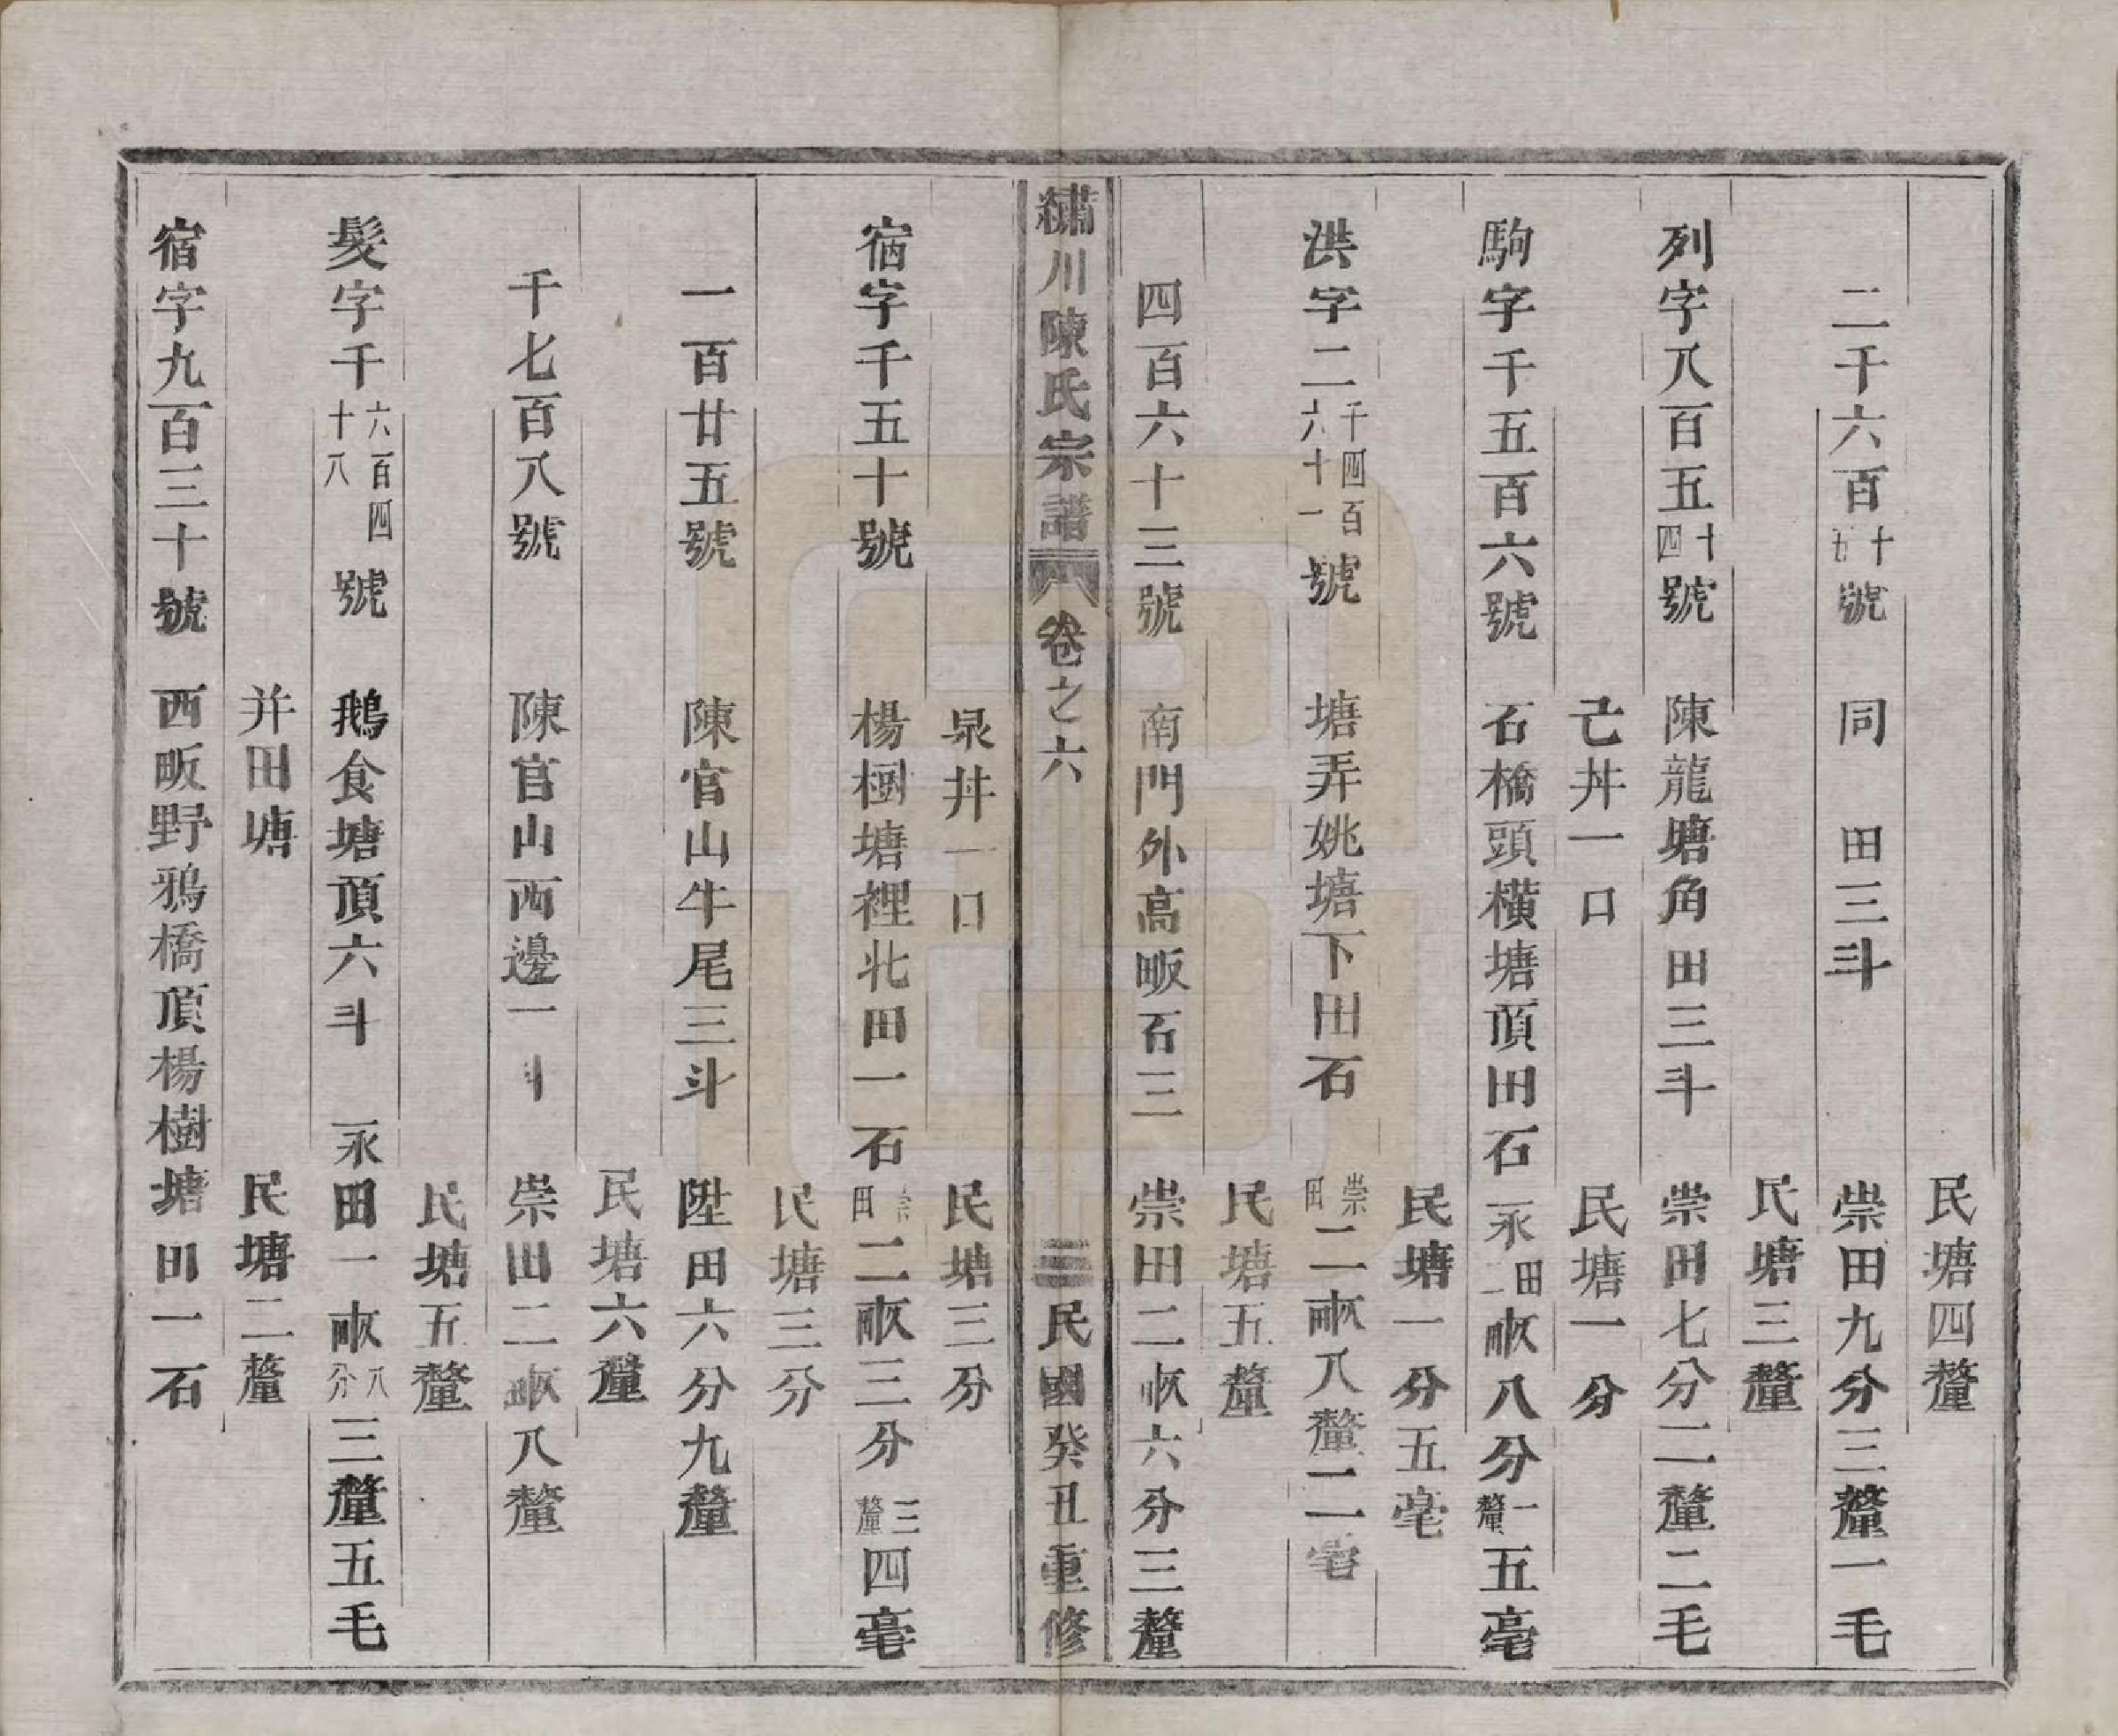 民塘四釐
二千六百十五號　同　田三斗　崇田九分三釐一毛
民塘三釐
列字八百五十四號　陳龍塘角田三斗　崇田七分二釐二毛
己丼一口　民塘一分
駒字千五百六號　石橋頭橫塘頂田石　永田二畝八分一釐五毫
民塘一分五毫
洪字二千四百六十一號　塘弄姚塘下田石　崇田二畝八釐二毫
民塘五釐
四百六十三號　南門外高畈石三　崇田二畝六分三釐
繡川陳氏宗譜　卷之六　三　民國癸丑重修
泉丼一口　民塘三分
宿字千五十號　楊樹塘裡北田一石　崇田二畝三分三釐四毫
民塘三分
一百廿五號　陳官山牛尾三斗　陞田六分九釐
民塘六釐
千七百八號　陳官山西邊一斗　崇田二畝八釐
民塘五釐
髮字千六百四十八號　鵝食塘頂六斗　永田一畝八分三釐五毛
并田塘　民塘二釐
宿字九百三十號　西畈野鴉橋頂楊樹塘田一石